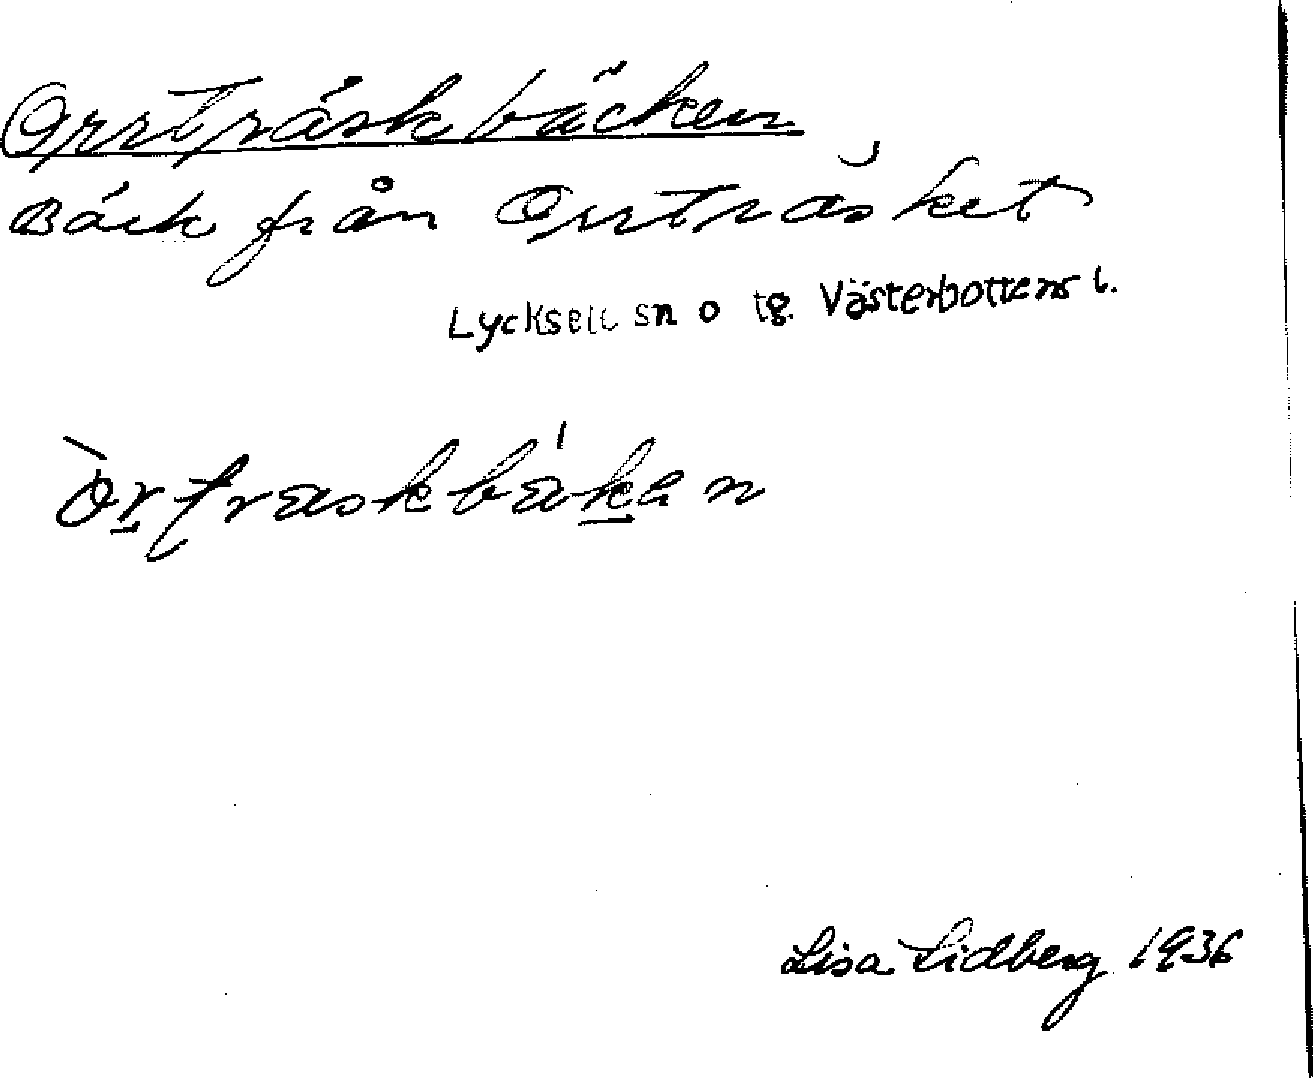 Orrträskbäcken
Bäck från Orrträsket
Lycksele sn o tg. Västerbottens l.
Òrtræskbǽkan
Lisa Lidberg 1936